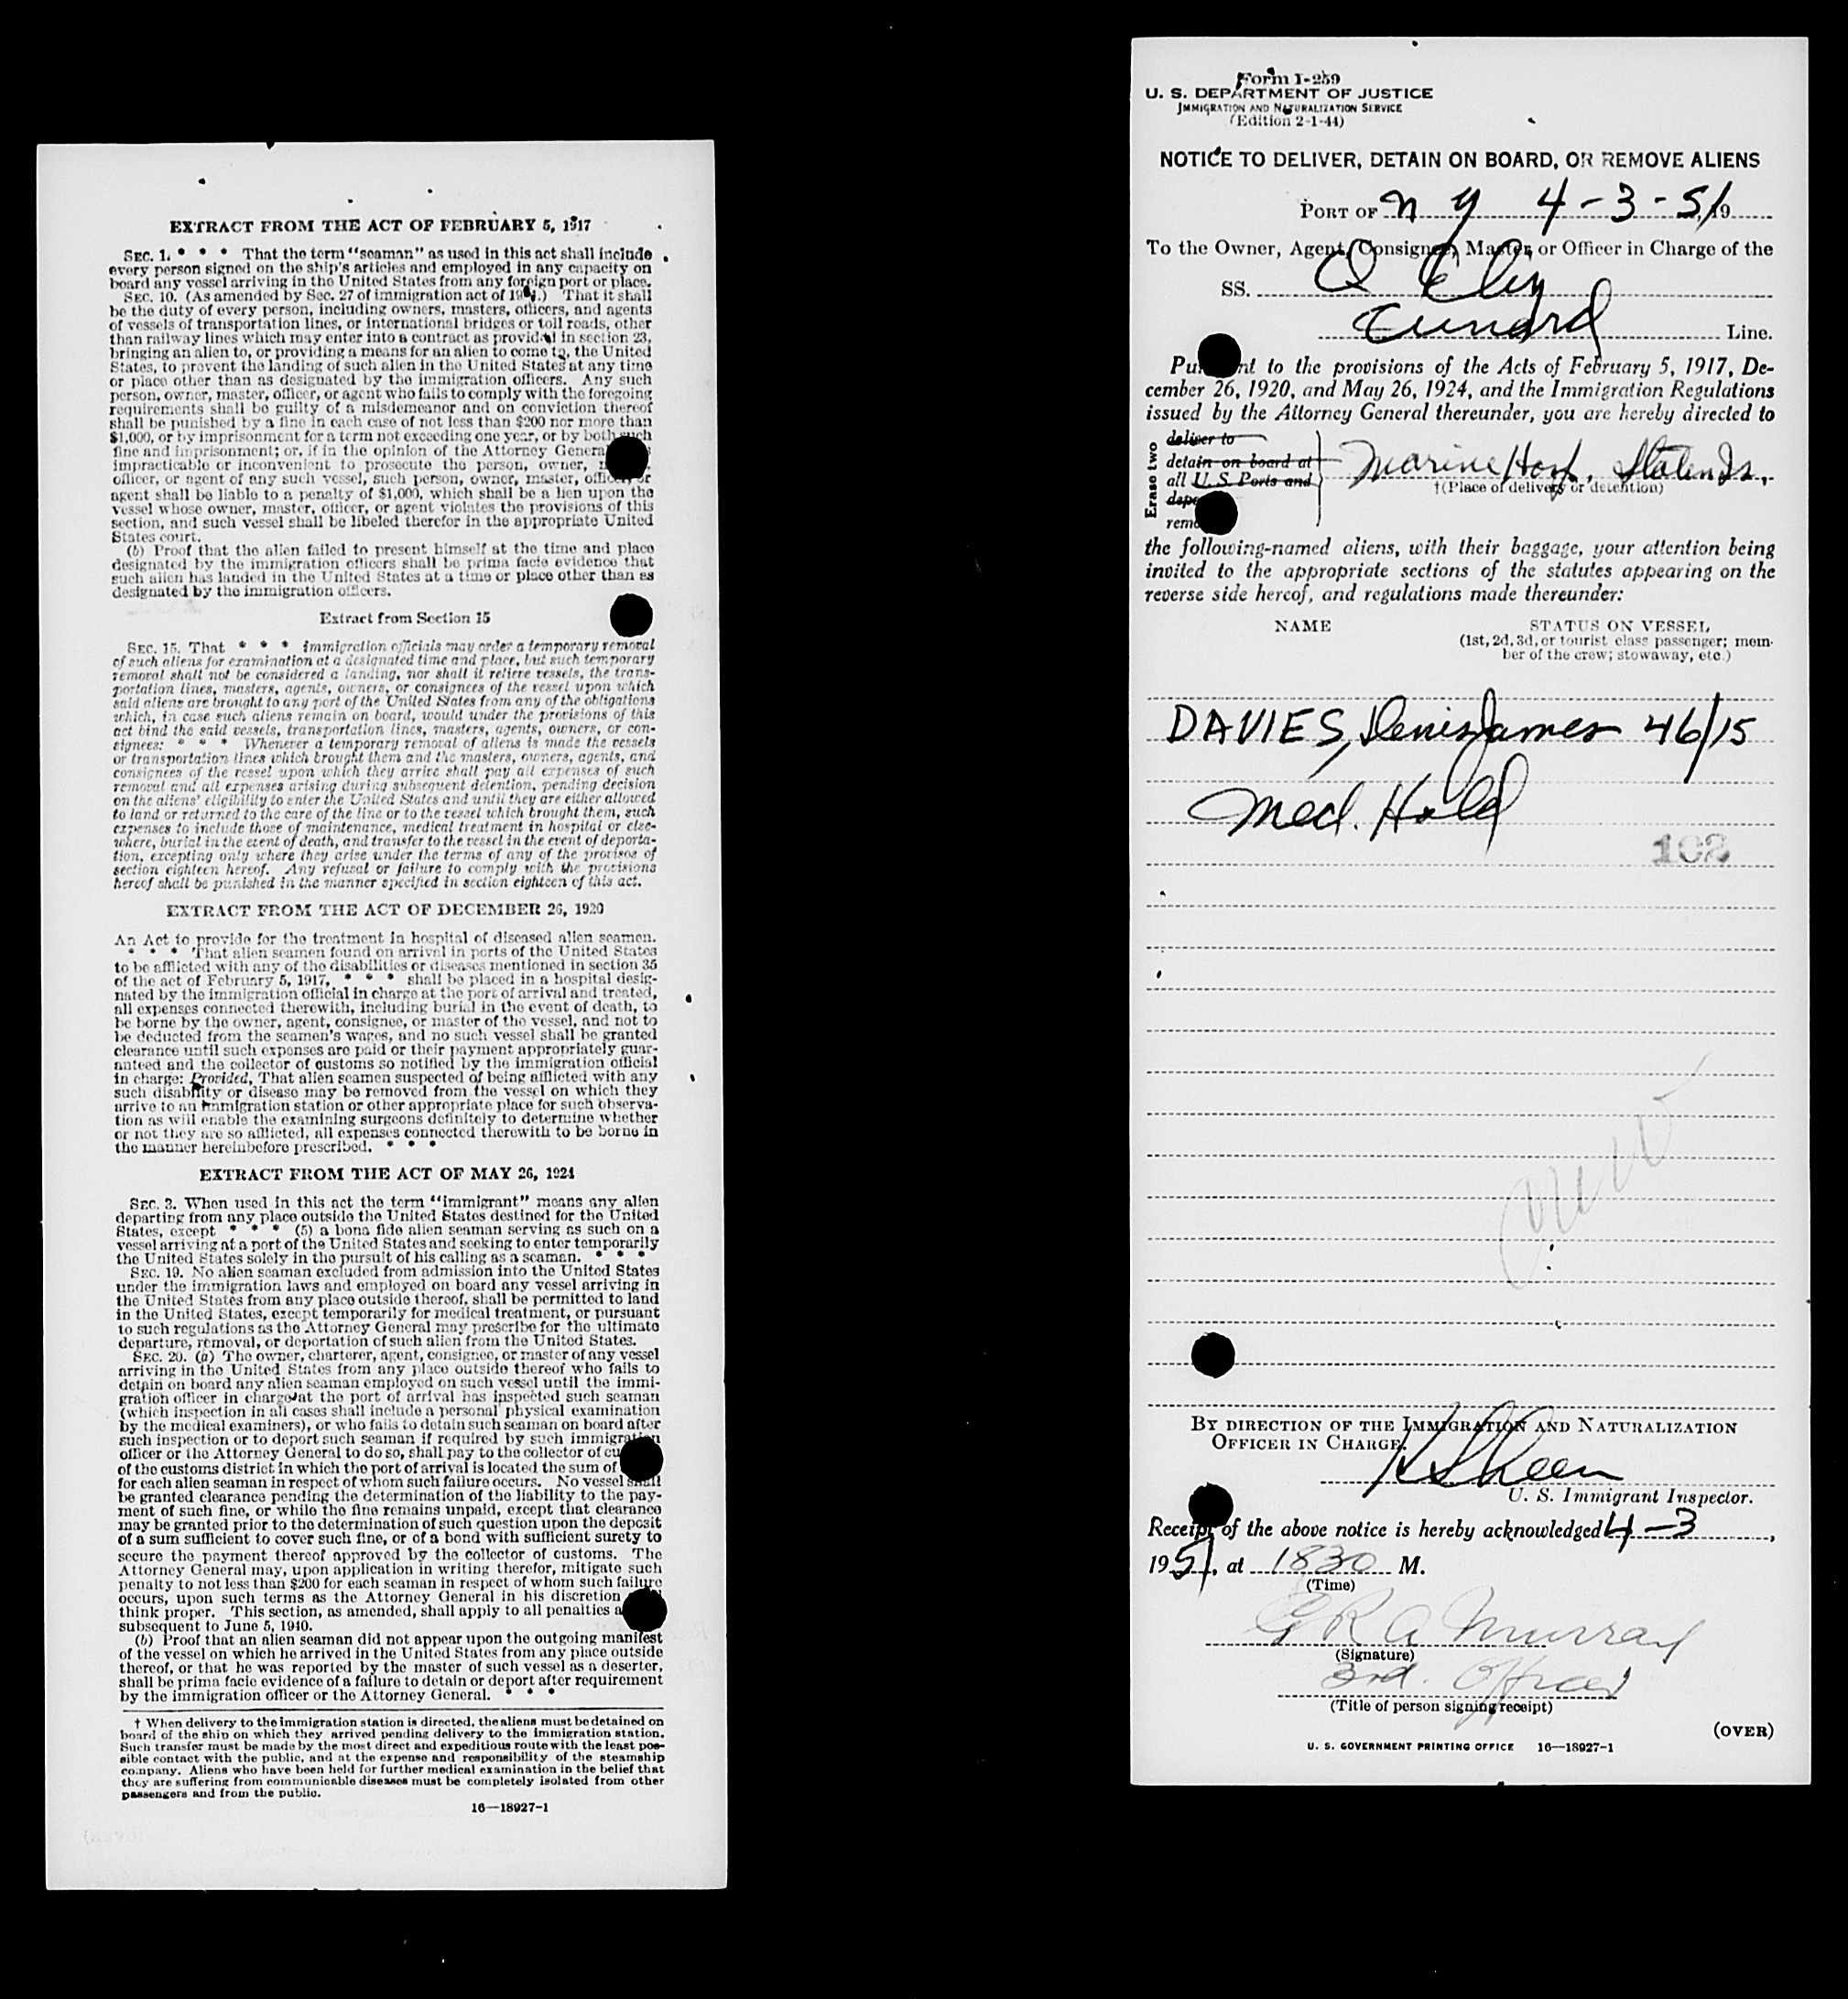 EXTRACT FROM THE ACT OF FEBRUARY 5, 1917
SEC. 1. * * * That the term "seaman" as used in this act shall include
every person signed on the ship's articles and employed in any capacity on
board any vessel arriving in the United States from any foreign port or place.
SEC. 10. (As amended by Sec. 27 of immigration act of 19 .) That it shall
be the duty of every person, including owners, masters, officers, and agents
of vessels of transportation lines, or international bridges or toll roads, other
than railway lines which may enter into a contract as provided in section 23,
bringing an alien to, or providing a means for an alien to come to, the United
States, to prevent the landing of such alien in the United States at any time
or place other than as designated by the immigration officers. Any such
person, owner, master, officer, or agent who fails to comply with the foregoing
requirements shall be guilty of a misdemeanor and on conviction thereof
shall be punished by a fine in each case of not less than $200 nor more than
$1,000, or by imprisonment for a term not exceeding one year, or by both such
fine and imprisonment; or, if in the opinion of the Attorney Genera
impracticable or inconvenient to prosecute the person, owner,
officer, or agent of any such vessel, such person, owner, master, officer, or
agent shall be liable to a penalty of $1,000, which shall be a lien upon the
vessel whose owner, master, officer, or agent violates the provisions of this
section, and such vessel shall be libeled therefor in the appropriate United
States court.
(b) Proof that the alien failed to present himself at the time and place
designated by the immigration officers shall be prima facie evidence that
such alien has landed in the United States at a time or place other than as
designated by the immigration officers.
Extract from Section 15
SEC. 15. That * * * immigration officials may order a temporary removal
of such aliens for examination at a designated time and place, but such temporary
removal shall not be considered a landing, nor shall it relieve vessels, the trans-
portation lines, masters, agents, owners, or consignees of the vessel upon which
said aliens are brought to any port of the United States from any of the obligations
which, in case such aliens remain on board, would under the provisions of this
act bind the said vessels, transportation lines, masters, agents, owners, or con-
signees: * * * Whenever a temporary removal of aliens is made the vessels
or transportation lines which brought them and the masters, owners, agents, and
consignees of the vessel upon which they arrive shall pay all expenses of such
removal and all expenses arising during subsequent detention, pending decision
on the aliens' eligibility to enter the United States and until they are either allowed
to land or returned to the care of the line or to the vessel which brought them, such
expenses to include those of maintenance, medical treatment in hospital or else-
where, burial in the event of death, and transfer to the vessel in the event of deporta-
tion, excepting only where they arise under the terms of any of the provisos of
section eighteen hereof. Any refusal or failure to comply with the provisions
hereof shall be punished in the manner specified in section eighteen of this act.
EXTRACT FROM THE ACT OF DECEMBER 26, 1920
An Act to provide for the treatment in hospital of diseased alien seamen.
* * * That alien seamen found on arrival in ports of the United States
to be afflicted with any of the disabilities or diseases mentioned in section 35
of the act of February 5, 1917, * * * shall be placed in a hospital desig-
nated by the immigration official in charge at the port of arrival and treated,
all expenses connected therewith, including burial in the event of death, to
be borne by the owner, agent, consignee, or master of the vessel, and not to
be deducted from the seamen's wages, and no such vessel shall be granted
clearance until such expenses are paid or their payment appropriately guar-
anteed and the collector of customs so notified by the immigration official
in charge: Provided, That alien seamen suspected of being afflicted with any
such disability or disease may be removed from the vessel on which they
arrive to an immigration station or other appropriate place for such observa-
tion as will enable the examining surgeons definitely to determine whether
or not they are so afflicted, all expenses connected therewith to be borne in
the manner hereinbefore prescribed. * * *
EXTRACT FROM THE ACT OF MAY 26, 1924
SEC. 3. When used in this act the term "immigrant" means any alien
departing from any place outside the United States destined for the United
States, except * * * (5) a bona fide alien seaman serving as such on a
vessel arriving at a port of the United States and seeking to enter temporarily
the United States solely in the pursuit of his calling as a seaman. * * *
SEC. 19. No alien seaman excluded from admission into the United States
under the immigration laws and employed on board any vessel arriving in
the United States from any place outside thereof, shall be permitted to land
in the United States, except temporarily for medical treatment, or pursuant
to such regulations as the Attorney General may prescribe for the ultimate
departure, removal, or deportation of such alien from the United States.
SEC. 20. (a) The owner, charterer, agent, consignee, or master of any vessel
arriving in the United States from any place outside thereof who fails to
detain on board any alien seaman employed on such vessel until the immi-
gration officer in charge at the port of arrival has inspected such seaman
(which inspection in all cases shall include a personal physical examination
by the medical examiners), or who fails to detain such seaman on board after
such inspection or to deport such seaman if required by such immigration
officer or the Attorney General to do so, shall pay to the collector of cu
of the customs district in which the port of arrival is located the sum of
for each alien seaman in respect of whom such failure occurs. No vessel shall
be granted clearance pending the determination of the liability to the pay-
ment of such fine, or while the fine remains unpaid, except that clearance
may be granted prior to the determination of such question upon the deposit
of a sum sufficient to cover such fine, or of a bond with sufficient surety to
secure the payment thereof approved by the collector of customs. The
Attorney General may, upon application in writing therefor, mitigate such
penalty to not less than $200 for each seaman in respect of whom such failure
occurs, upon such terms as the Attorney General in his discretion
think proper. This section, as amended, shall apply to all penalties a
subsequent to June 5, 1940.
(b) Proof that an alien seaman did not appear upon the outgoing manifest
of the vessel on which he arrived in the United States from any place outside
thereof, or that he was reported by the master of such vessel as a deserter,
shall be prima facie evidence of a failure to detain or deport after requirement
by the immigration officer or the Attorney General. * * *
† When delivery to the immigration station is directed, the aliens must be detained on
board of the ship on which they arrived pending delivery to the immigration station.
Such transfer must be made by the most direct and expeditious route with the least pos-
sible contact with the public, and at the expense and responsibility of the steamship
company. Aliens who have been held for further medical examination in the belief that
they are suffering from communicable diseases must be completely isolated from other
passengers and from the public.
16—18927-1
Form I-259
U. S. DEPARTMENT OF JUSTICE
IMMIGRATION AND NATURALIZATION SERVICE
(Edition 2-1-44)
NOTICE TO DELIVER, DETAIN ON BOARD, OR REMOVE ALIENS
PORT OF N Y 4-3-51, 19
To the Owner, Agent, Consignee, Master, or Officer in Charge of the
SS. Q Eliz
Cunard Line.
Pu nt to the provisions of the Acts of February 5, 1917, De-
cember 26, 1920, and May 26, 1924, and the Immigration Regulations
issued by the Attorney General thereunder, you are hereby directed to
Erase two
deliver to
detain on board at
all U. S. Ports and
depo
remo
Marine Hosp, Staten Is.
†(Place of delivery or detention)
the following-named aliens, with their baggage, your attention being
invited to the appropriate sections of the statutes appearing on the
reverse side hereof, and regulations made thereunder:
NAME STATUS ON VESSEL
(1st, 2d, 3d, or tourist class passenger; mem-
ber of the crew; stowaway, etc.)
DAVIES, Denis James 46/15
Med. Hold
102
BY DIRECTION OF THE IMMIGRATION AND NATURALIZATION
OFFICER IN CHARGE.
U. S. Immigrant Inspector.
Receipt of the above notice is hereby acknowledged 4-3,
1951, at 1830 M.
(Time)
G R A Murray
(Signature)
3rd. Officer
(Title of person signing receipt)
(OVER)
U. S. GOVERNMENT PRINTING OFFICE 16—18927-1